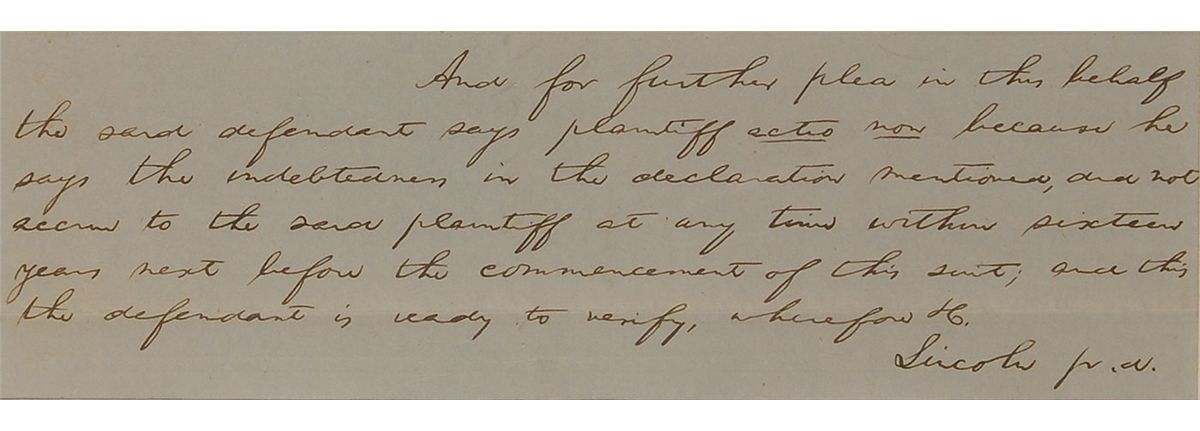 And for further plea in this behalf
the said defendant says plaintiff actio non because he
says the indebtedness in the declaration mentioned, did not
accrue to the said plaintiff at any time within sixteen
years next before the commencement of this suit; and this
the defendant is ready to verify, wherefore &c.
Lincoln p. d.